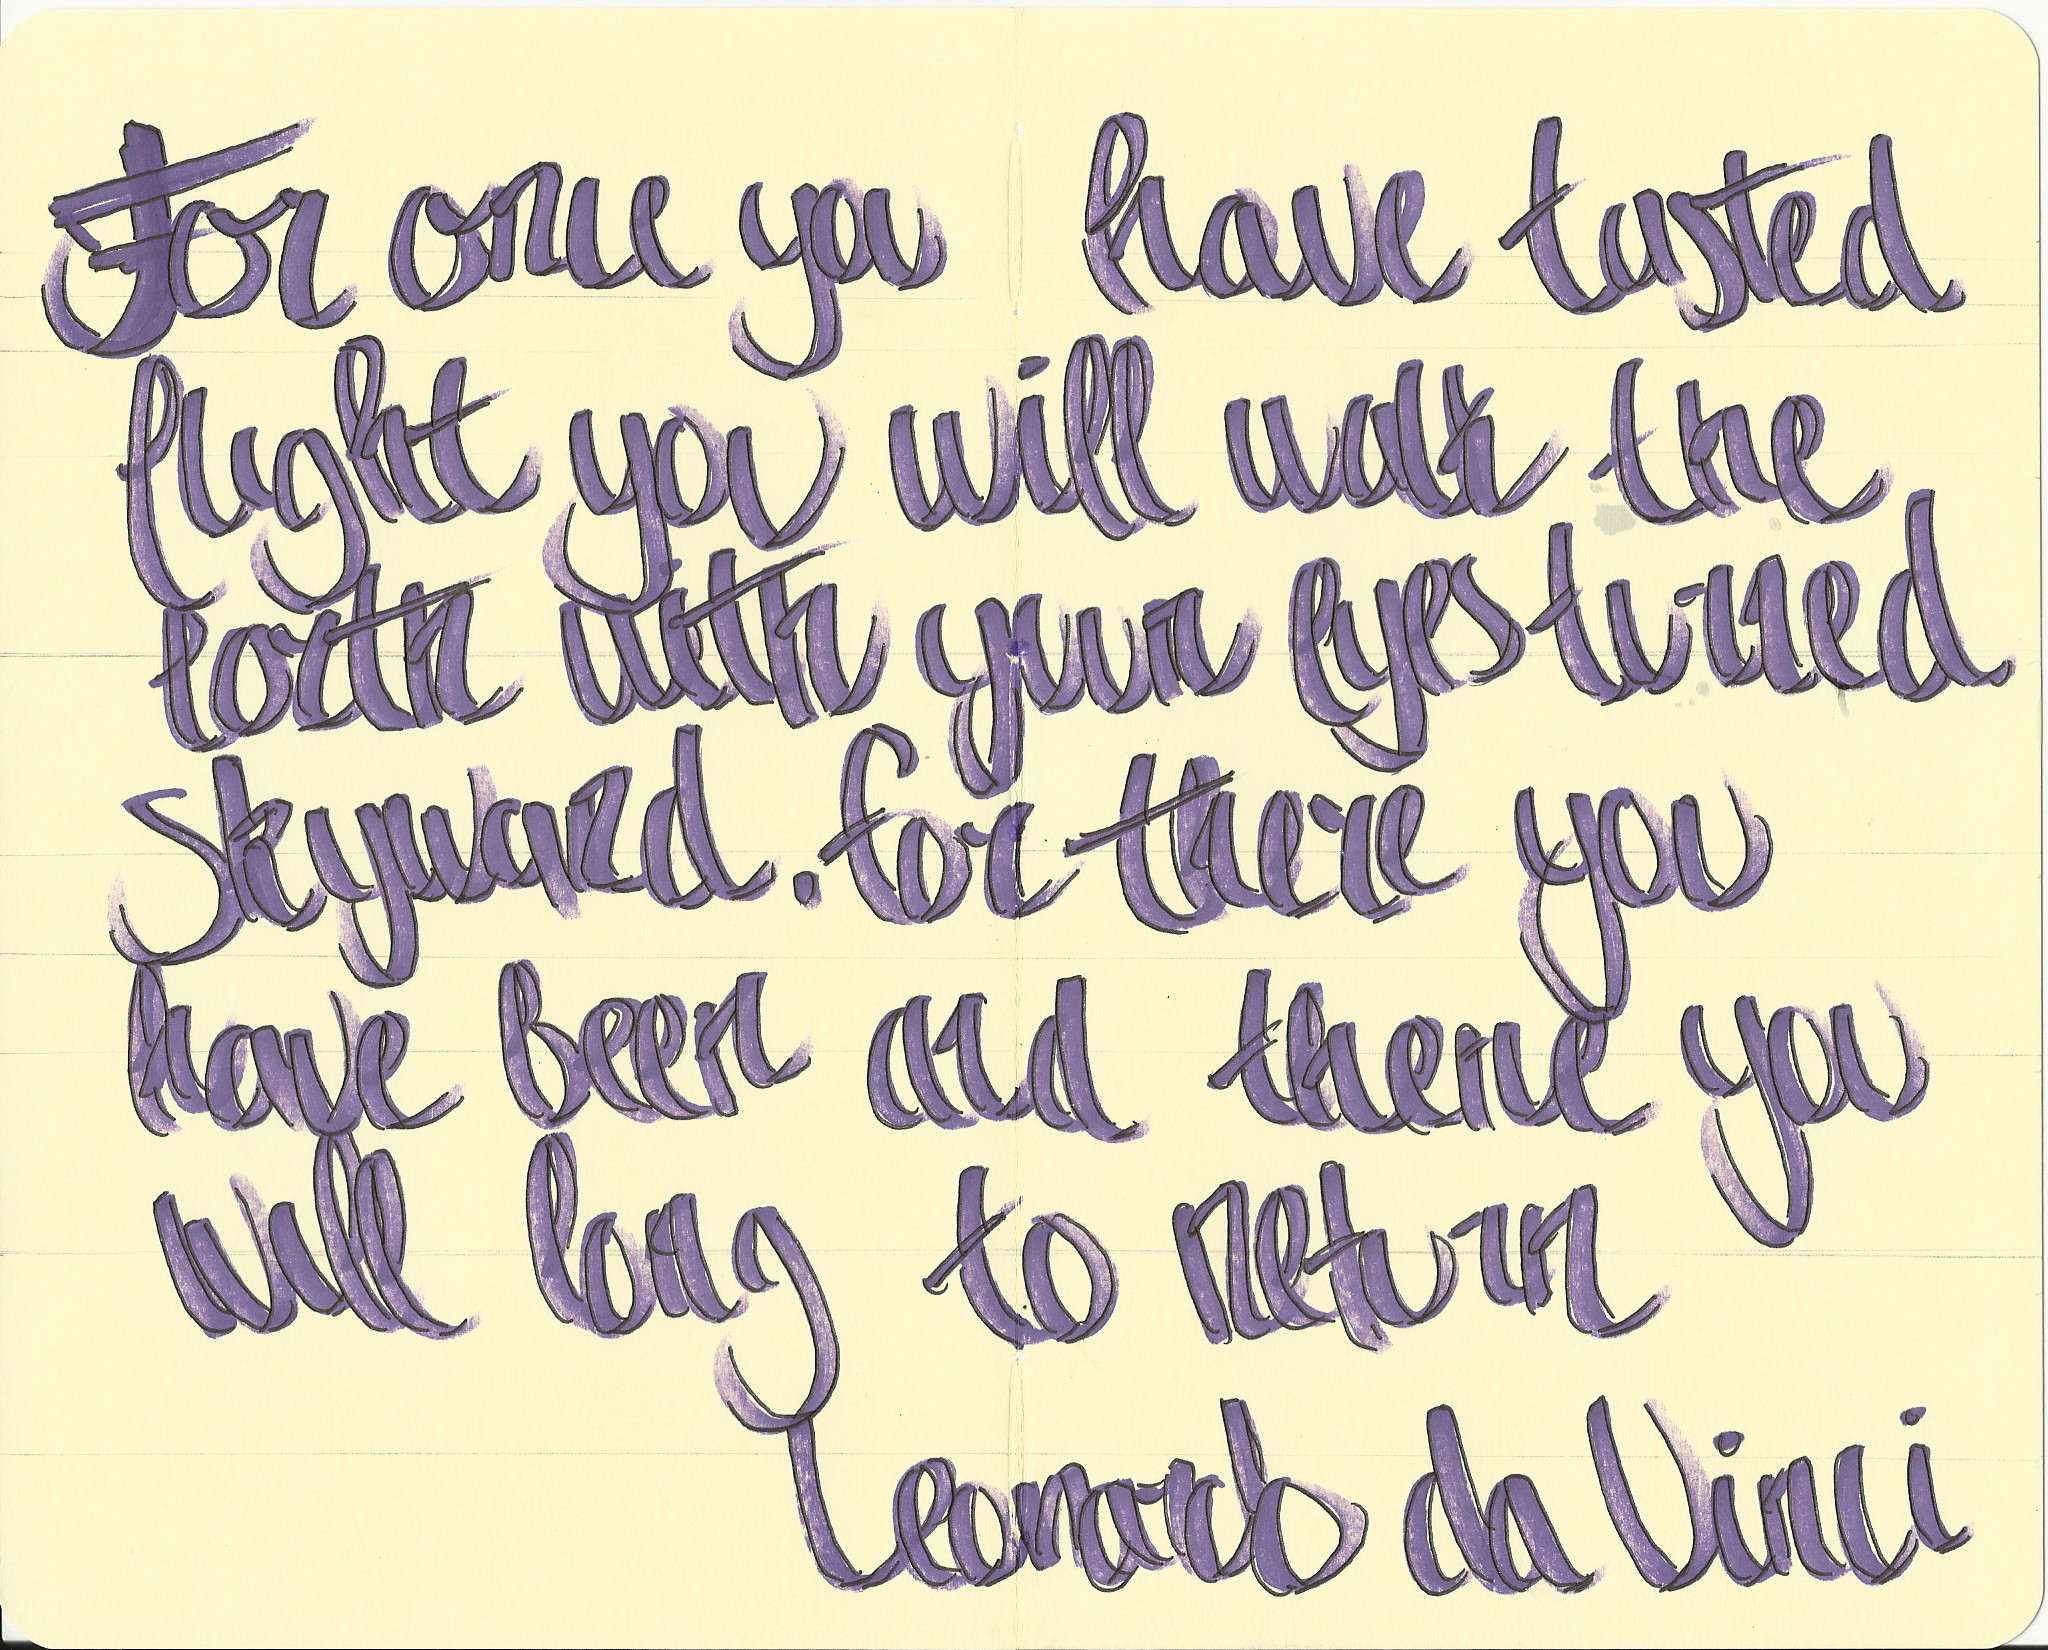 For once you have tasted
flight you will walk the
earth with your eyes turned
skyward. for there you
have Been and there you
will long to return
Leonardo da Vinci